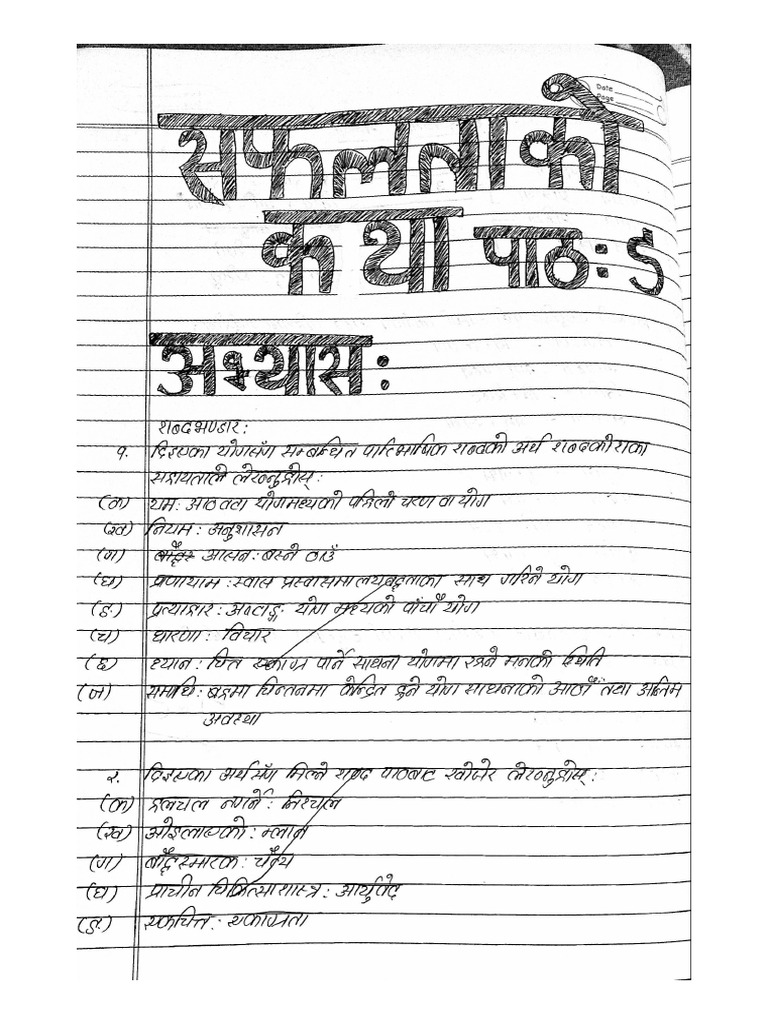 Date
Page
सफलताको
कथा पाठः ५
अभ्यासः
शब्दभण्डार:
१. दिइएका योगसँग सम्बन्धित पारिभाषिक शब्दको अर्थ शब्दकोशका
सहायताले लेख्नुहोस्:
(क) यम: आठवटा योगमध्यको पहिलो चरण वा योग
(ख) नियम: अनुशासन
(ग) आसन: बस्ने ठाउँ
(घ) प्राणायाम: स्वास प्रस्वासमा लयबद्धताका साथ गरिने योग
(ङ) प्रत्याहार: अष्टाङ्ग योग मध्यको पाँचौँ योग
(च) धारणा: विचार
(छ) ध्यान: चित्त एकाग्र पार्ने साधना योगमा रहने मनको स्थिति
(ज) समाधि: ब्रह्ममा चिन्तनमा केन्द्रित हुने योग साधनाको आठौँ तथा अन्तिम
अवस्था
२. दिइएका अर्थसँग मिल्ने शब्द पाठबाट खोजेर लेख्नुहोस्:
(क) हलचल नगर्ने: निश्चल
(ख) ओइलाएको: म्लान
(ग) बौद्धस्मारक: चैत्य
(घ) प्राचीन चिकित्साशास्त्र: आर्युवेद
(ङ) एकचित्त: एकाग्रता